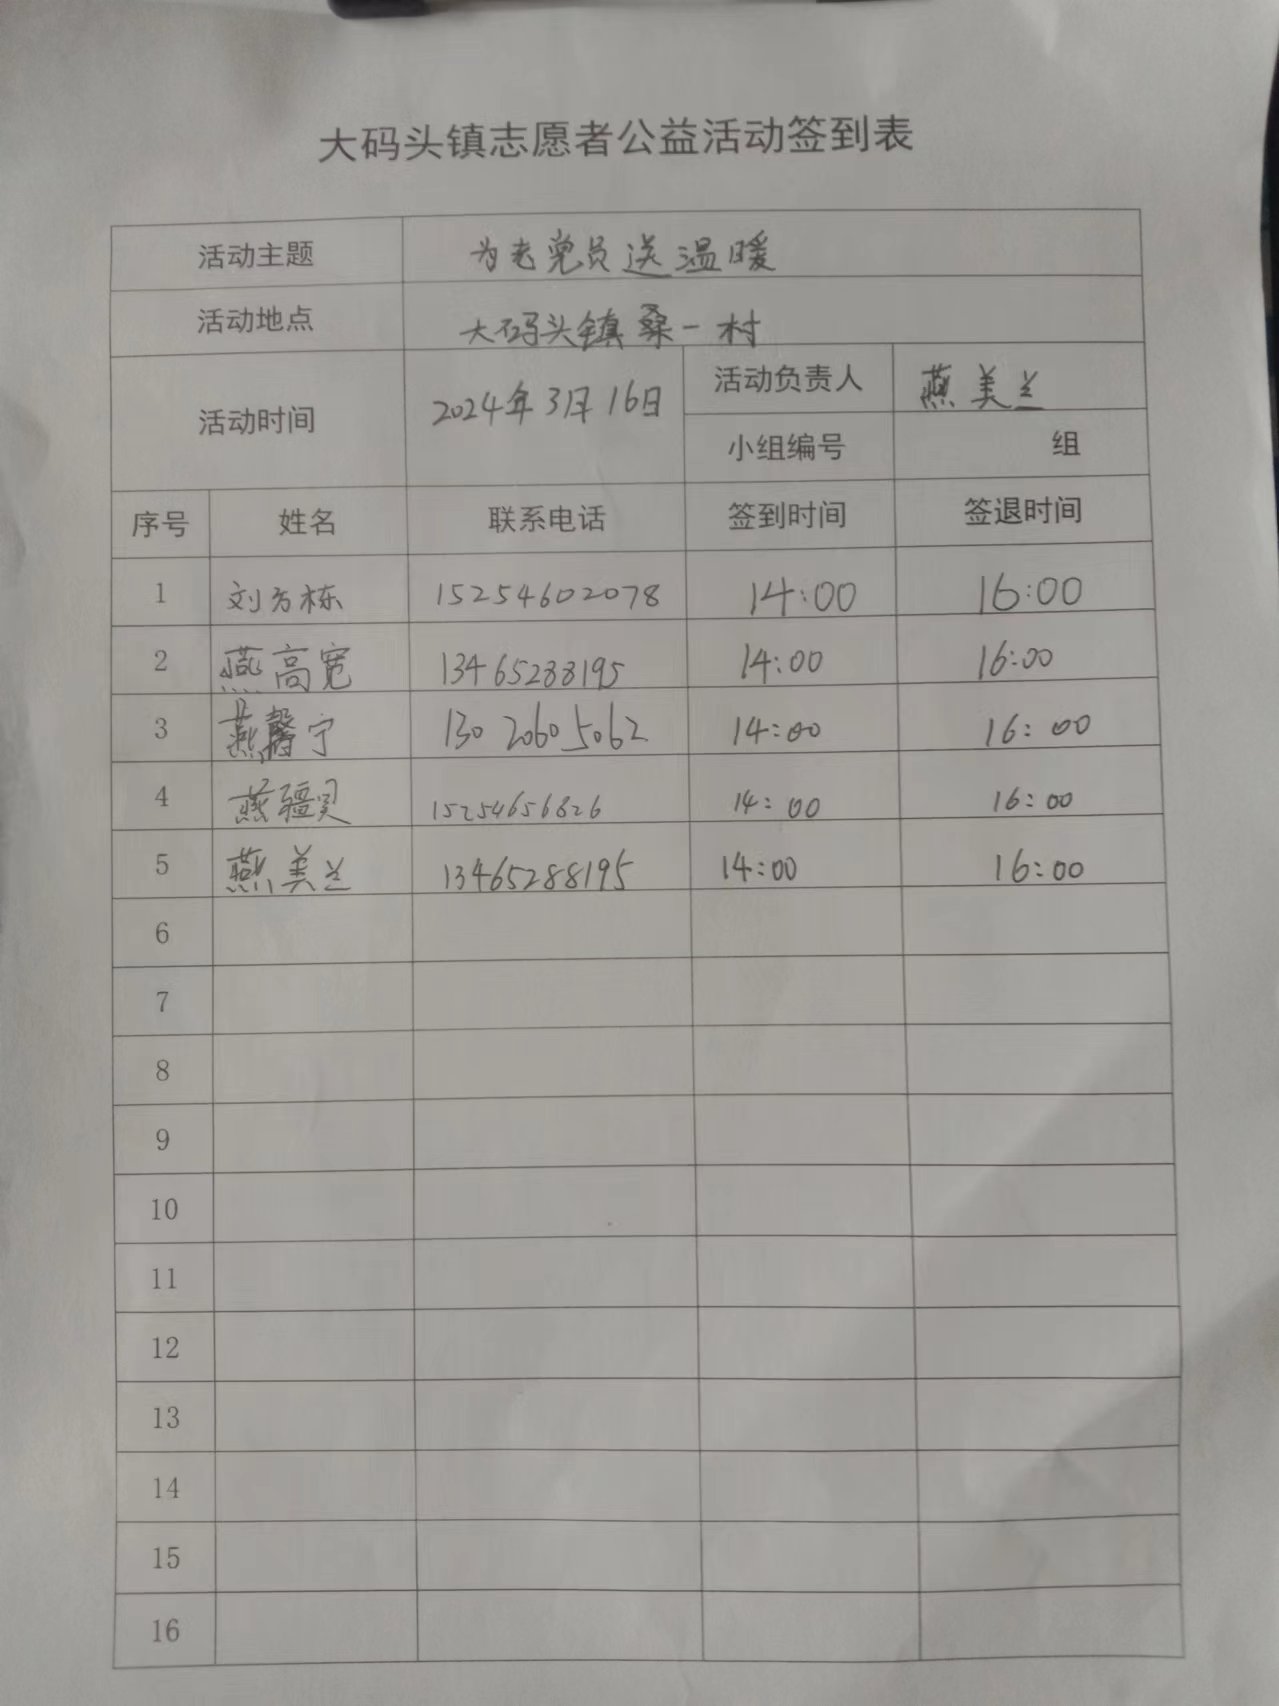 大码头镇志愿者公益活动签到表
活动主题 为老党员送温暖
活动地点 大码头镇桑一村
活动时间 2024年3月16日 活动负责人 燕美兰
小组编号 组
序号 姓名 联系电话 签到时间 签退时间
1 刘方栋 15254602078 14:00 16:00
2 燕高宽 13465288195 14:00 16:00
3 燕馨宁 13020605062 14:00 16:00
4 燕疆 15254656826 14:00 16:00
5 燕美兰 13465288195 14:00 16:00
6
7
8
9
10
11
12
13
14
15
16